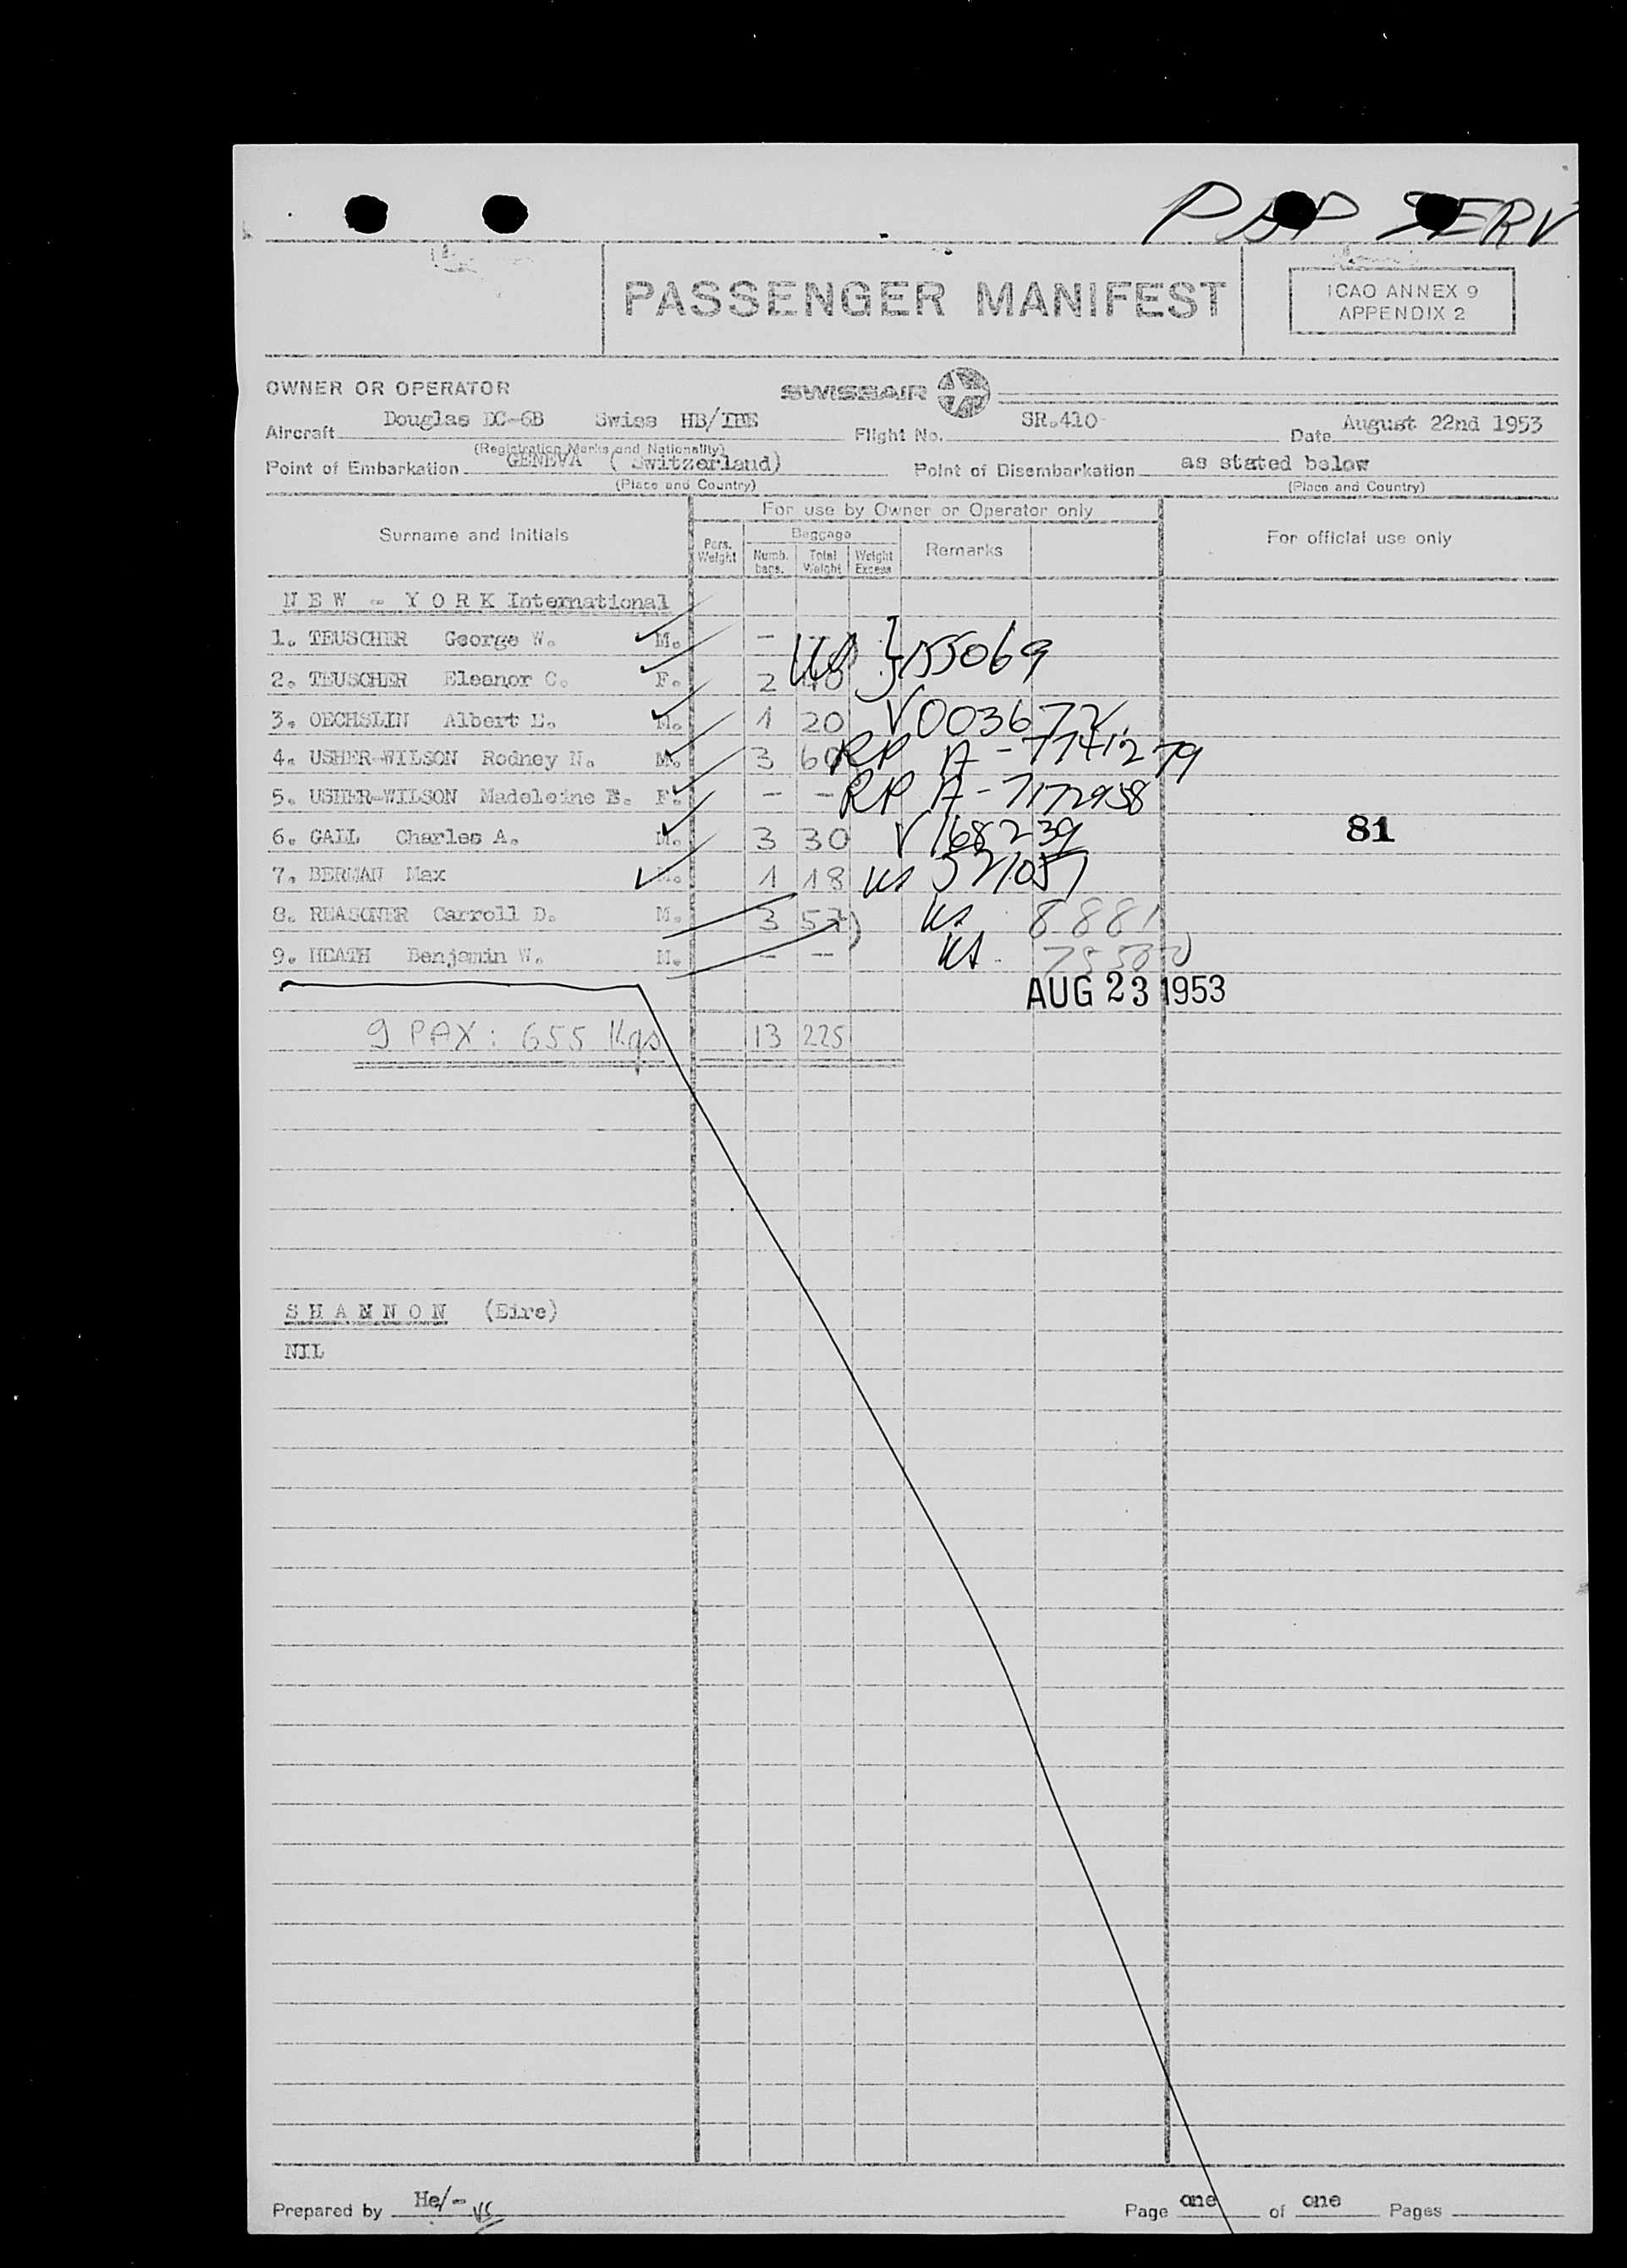 P A P SERV
PASSENGER MANIFEST
ICAO ANNEX 9
APPENDIX 2
OWNER OR OPERATOR
SWISSAIR
Aircraft Douglas DC-6B Swiss HB/IBE Flight No. SR.410 Date August 22nd 1953
(Registration Marks and Nationality)
Point of Embarkation GENEVA ( Switzerland) Point of Disembarkation as stated below
(Place and Country) (Place and Country)
Surname and Initials For use by Owner or Operator only For official use only
Pers. Weight Baggage Numb. bags. Total Weight Weight Excess Remarks
N E W - Y O R K International
1. TEUSCHER George W. M. -
2. TEUSCHER Eleanor C. F. 2 40 US 155069
3. OECHSLIN Albert E. M. 1 20 V003672
4. USHER-WILSON Rodney N. M. 3 60 RP A-7741279
5. USHER-WILSON Madeleine E. F. - - RP A-7172958
6. GAIL Charles A. M. 3 30 V168239
81
7. BERMAN Max M. 1 18 US 521057
8. REASONER Carroll D. M. 3 57 US 8881
9. HEATH Benjamin W. M. - - US
AUG 23 1953
9 PAX : 655 Kgs 13 225
S H A N N O N (Eire)
NIL
Prepared by He/- Page one of one Pages